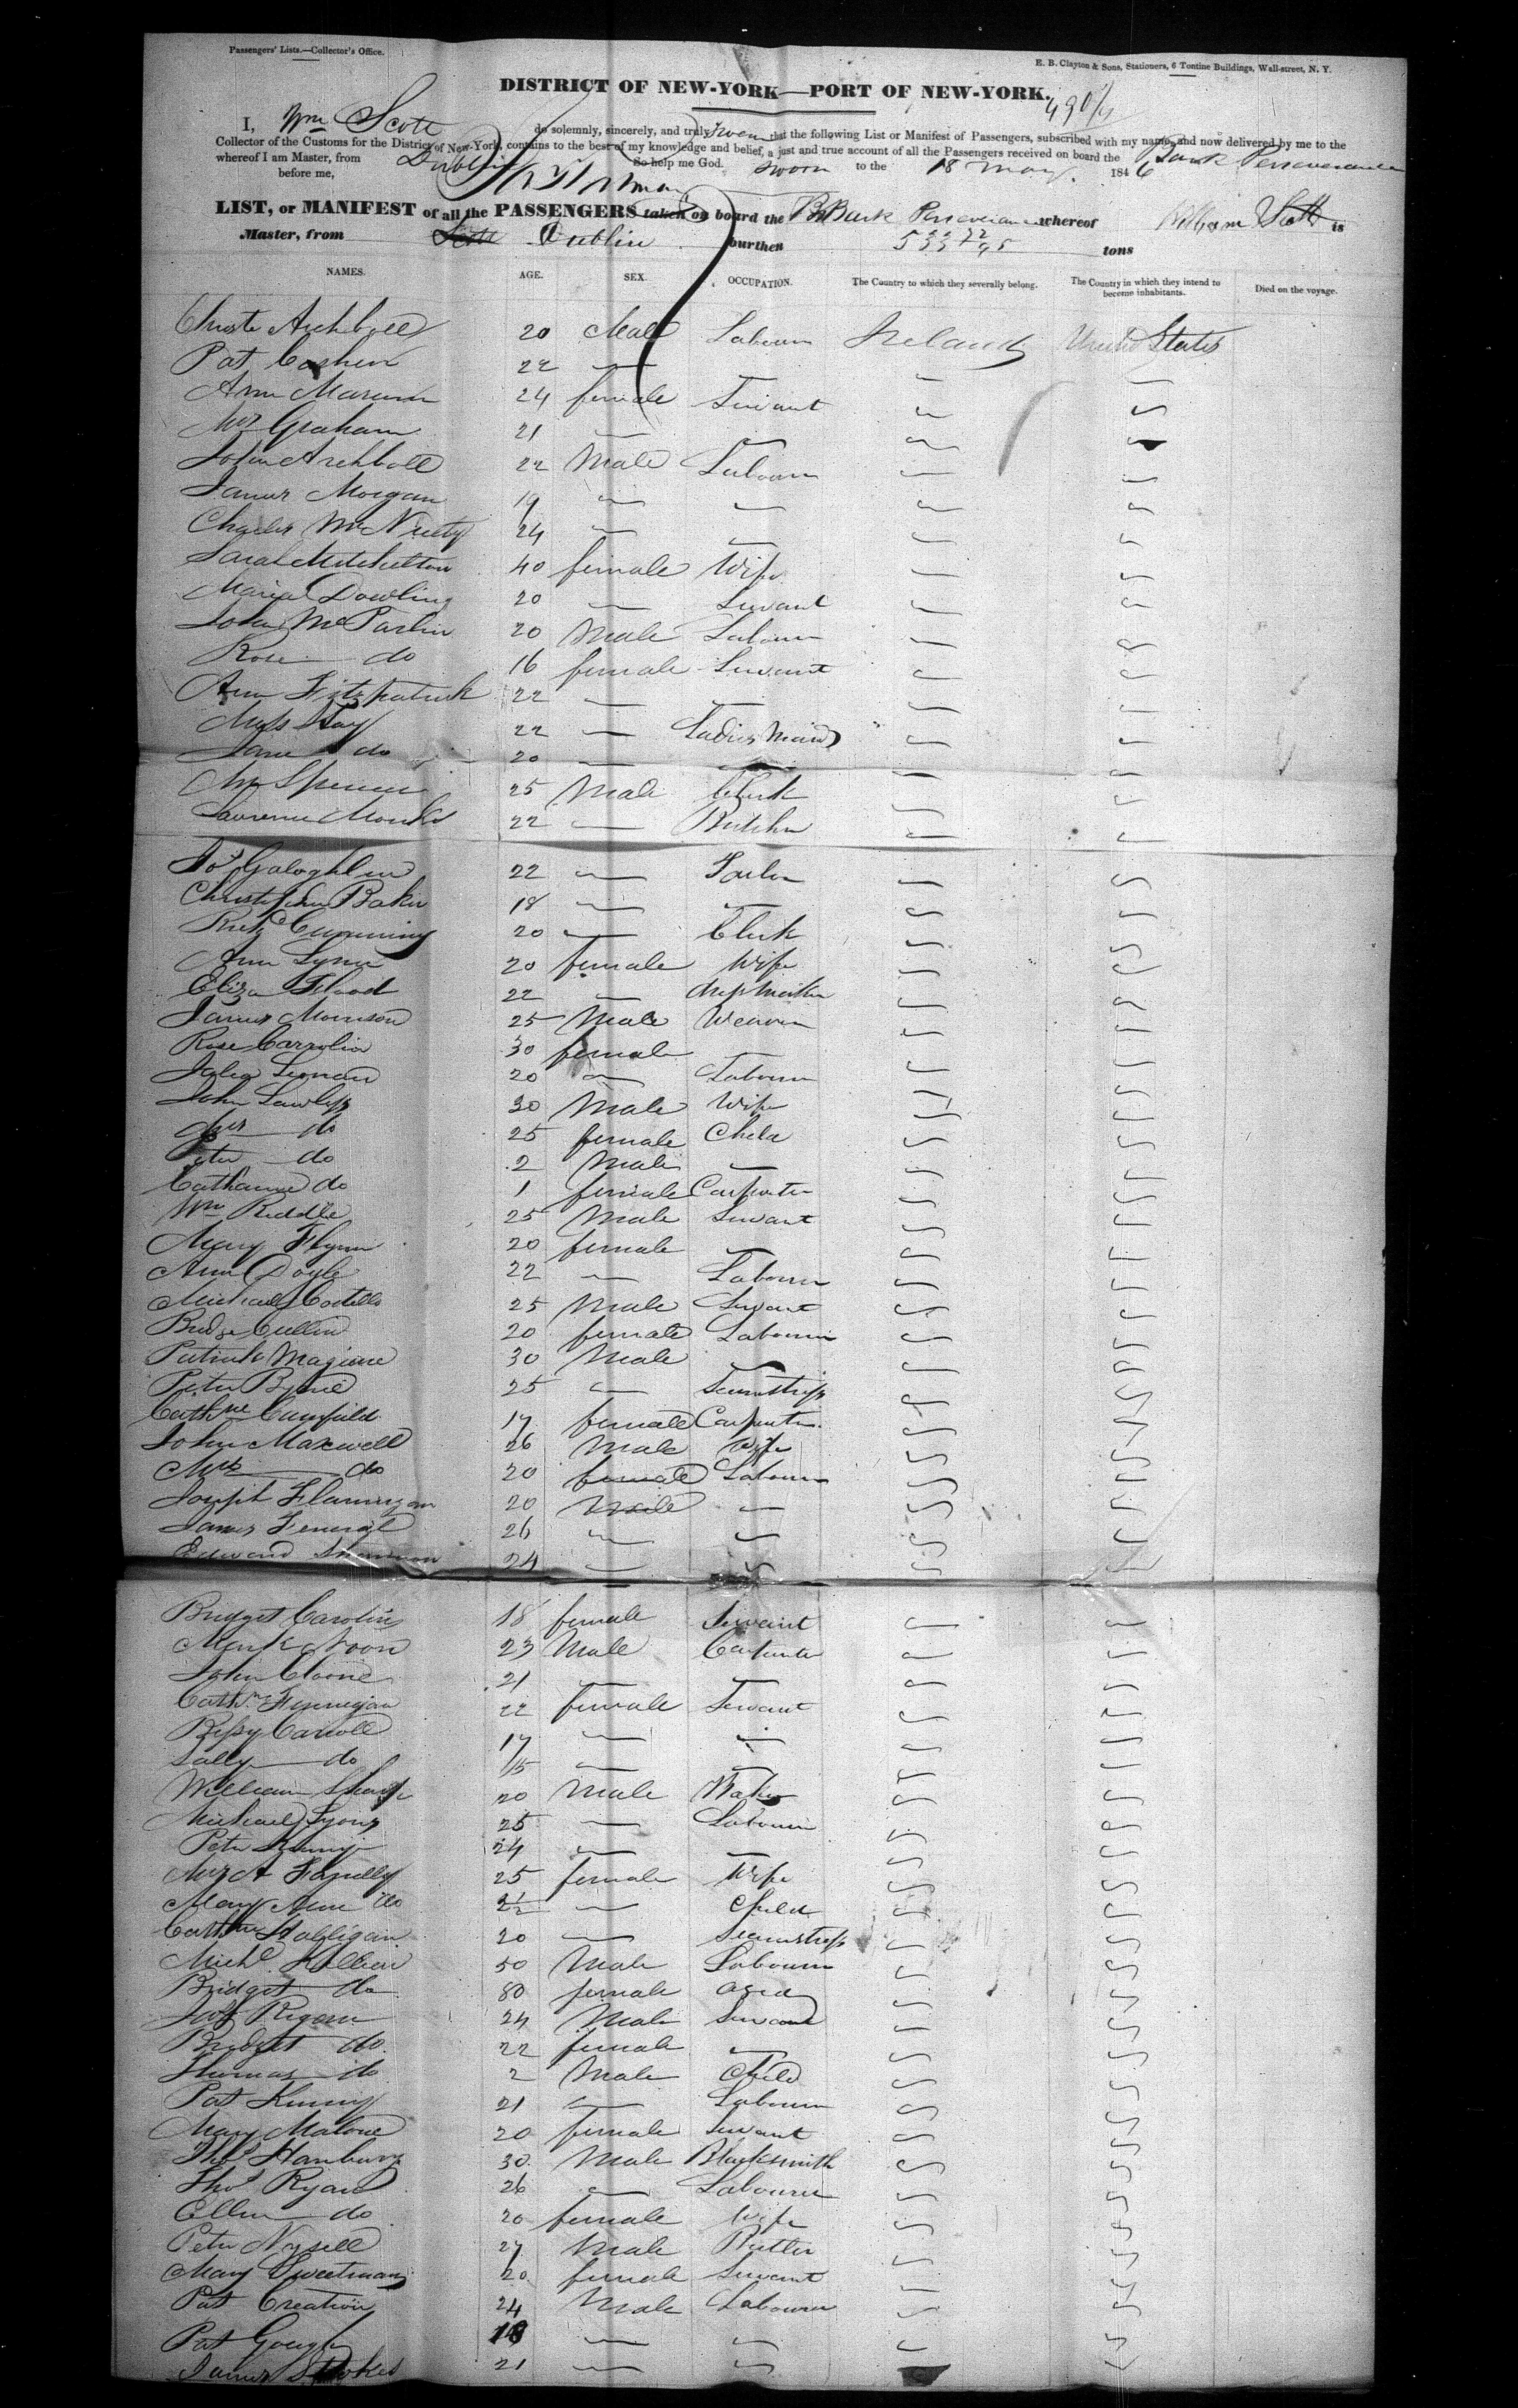 Passengers' Lists.—Collector's Office.
E. B. Clayton & Sons, Stationers, 6 Tontine Buildings, Wall-street, N. Y.
DISTRICT OF NEW-YORK—PORT OF NEW-YORK.
I, Wm Scott do solemnly, sincerely, and truly swear that the following List or Manifest of Passengers, subscribed with my name, and now delivered by me to the
Collector of the Customs for the District of New-York, contains to the best of my knowledge and belief, a just and true account of all the Passengers received on board the Bark Perseverance
whereof I am Master, from Dublin So help me God.
before me, sworn to the 18 May 1846
LIST, or MANIFEST of all the PASSENGERS taken on board the Br Bark Perseverance whereof William Scott is
Master, from Dublin burthen tons
NAMES. AGE. SEX. OCCUPATION. The Country to which they severally belong. The Country in which they intend to become inhabitants. Died on the voyage.
Archbold 20 Male Labourer Ireland United States
Pat 22 —
Ann 24 female Servant
Graham 21 —
John Archbold 22 Male Labourer
James Morgan 19 — —
Charles McNulty 24 — —
Sarah 40 female Wife
Maria Dowling 20 — Servant
John McParlin 20 Male Labourer
Rose do 16 female Servant
Ann Fitzpatrick 22 — —
Miss 22 — Ladies Maid
Jane do 20 — —
Spencer 25 Male Clerk
Lawrence Monks 22 — Butcher
22 — Tailor
Christopher Baker 18 — —
Cumming 20 — Clerk
Ann Lynn 20 female Wife
Eliza Flood 22 — dressmaker
James Morrison 25 Male Weaver
Rose Carrolin 30 female
Leonard 20 — Labourer
John Lawless 30 Male Wife
do 25 female Child
Peter do 2 Male —
Catharine do 1 female Carpenter
Wm Riddle 25 Male Servant
Mary Flynn 20 female —
Ann Doyle 22 — Labourer
Michael Costello 25 Male Servant
Cullen 20 female Labourer
Patrick Maguire 30 Male —
Peter Byrne 25 — Seamstress
Cathne Canfield 17 female Carpenter
John Maxwell 26 Male Wife
Mrs do 20 female Labourer
Joseph Flannigan 20 Male —
James 26 — —
Edward 24 — —
Bridget Carolin 18 female Servant
Mark Noon 23 Male Carpenter
John 21 — —
Cathne Finnegan 22 female Servant
Bessy Carroll 17 — —
Sally do 15 — —
William Sharp 20 Male Baker
Michael Lyons 25 — Labourer
Peter 24 — —
Mrs A Farrelly 25 female Wife
Mary Ann do — Child
Cathne Halligan 20 — Seamstress
Michl Killian 50 Male Labourer
Bridget do 80 female aged
Regan 24 Male Servant
Bridget do 22 female —
Thomas do 2 Male Child
Pat Kenny 21 — Labourer
Mary Malone 20 female Servant
Thos Hanbury 30 Male Blacksmith
Thos Ryan 26 — Labourer
Ellen do 20 female Wife
Peter 27 Male Butler
Mary Sweetman 20 female Servant
Pat 24 Male Labourer
Pat Gough 18 — —
James Stokes 21 — —